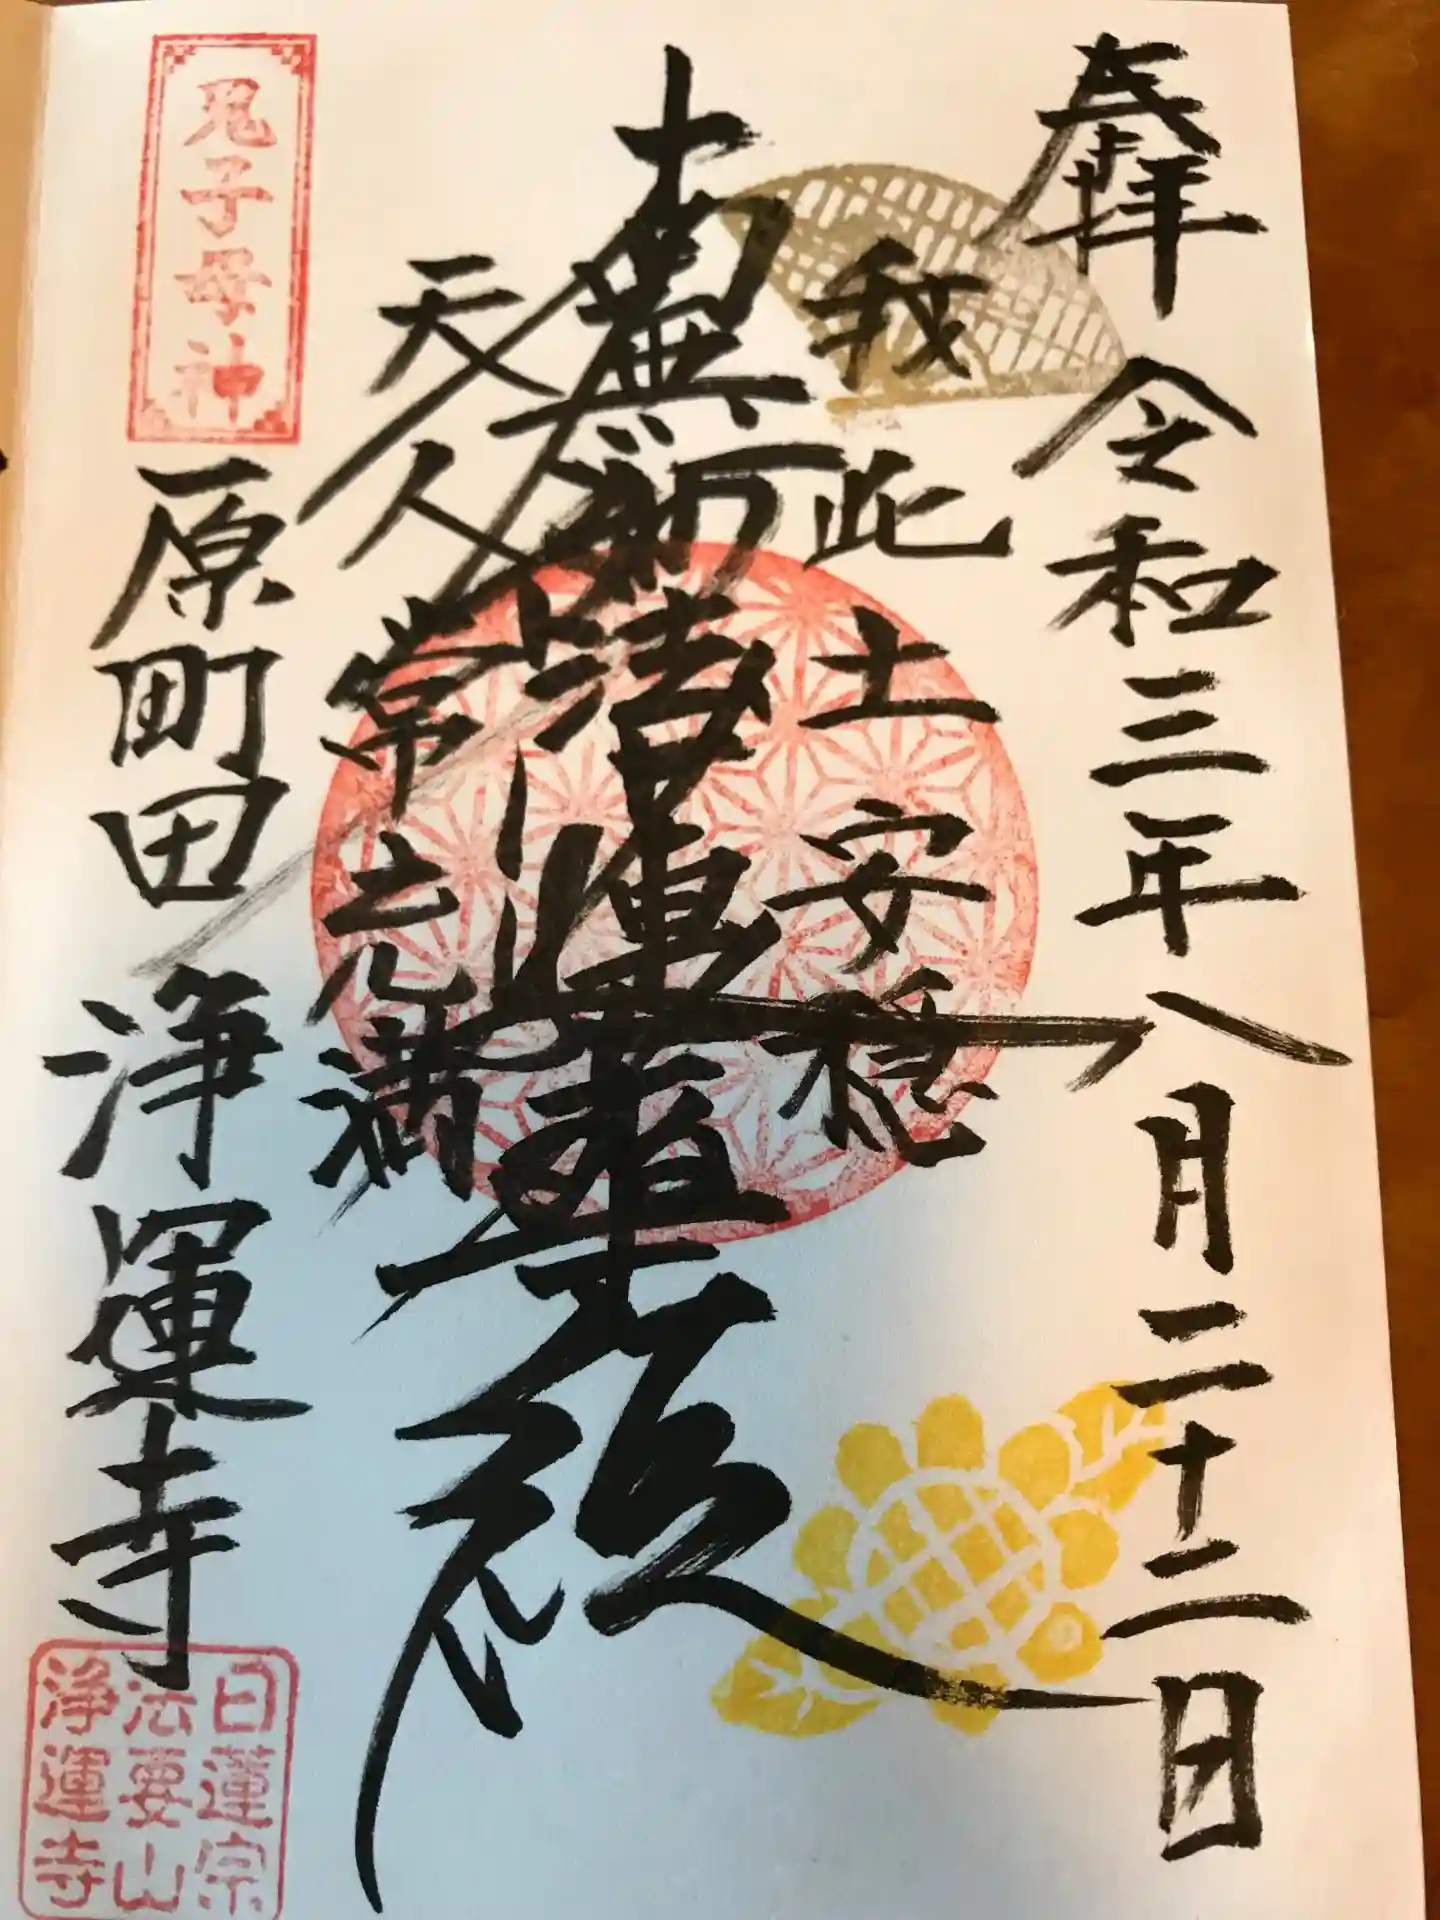 奉拝 令和三年八月二十二日
我此土安穏
南無妙法蓮華経
天人常充満
鬼子母神
原町田 浄運寺
日蓮宗
法要山
浄運寺